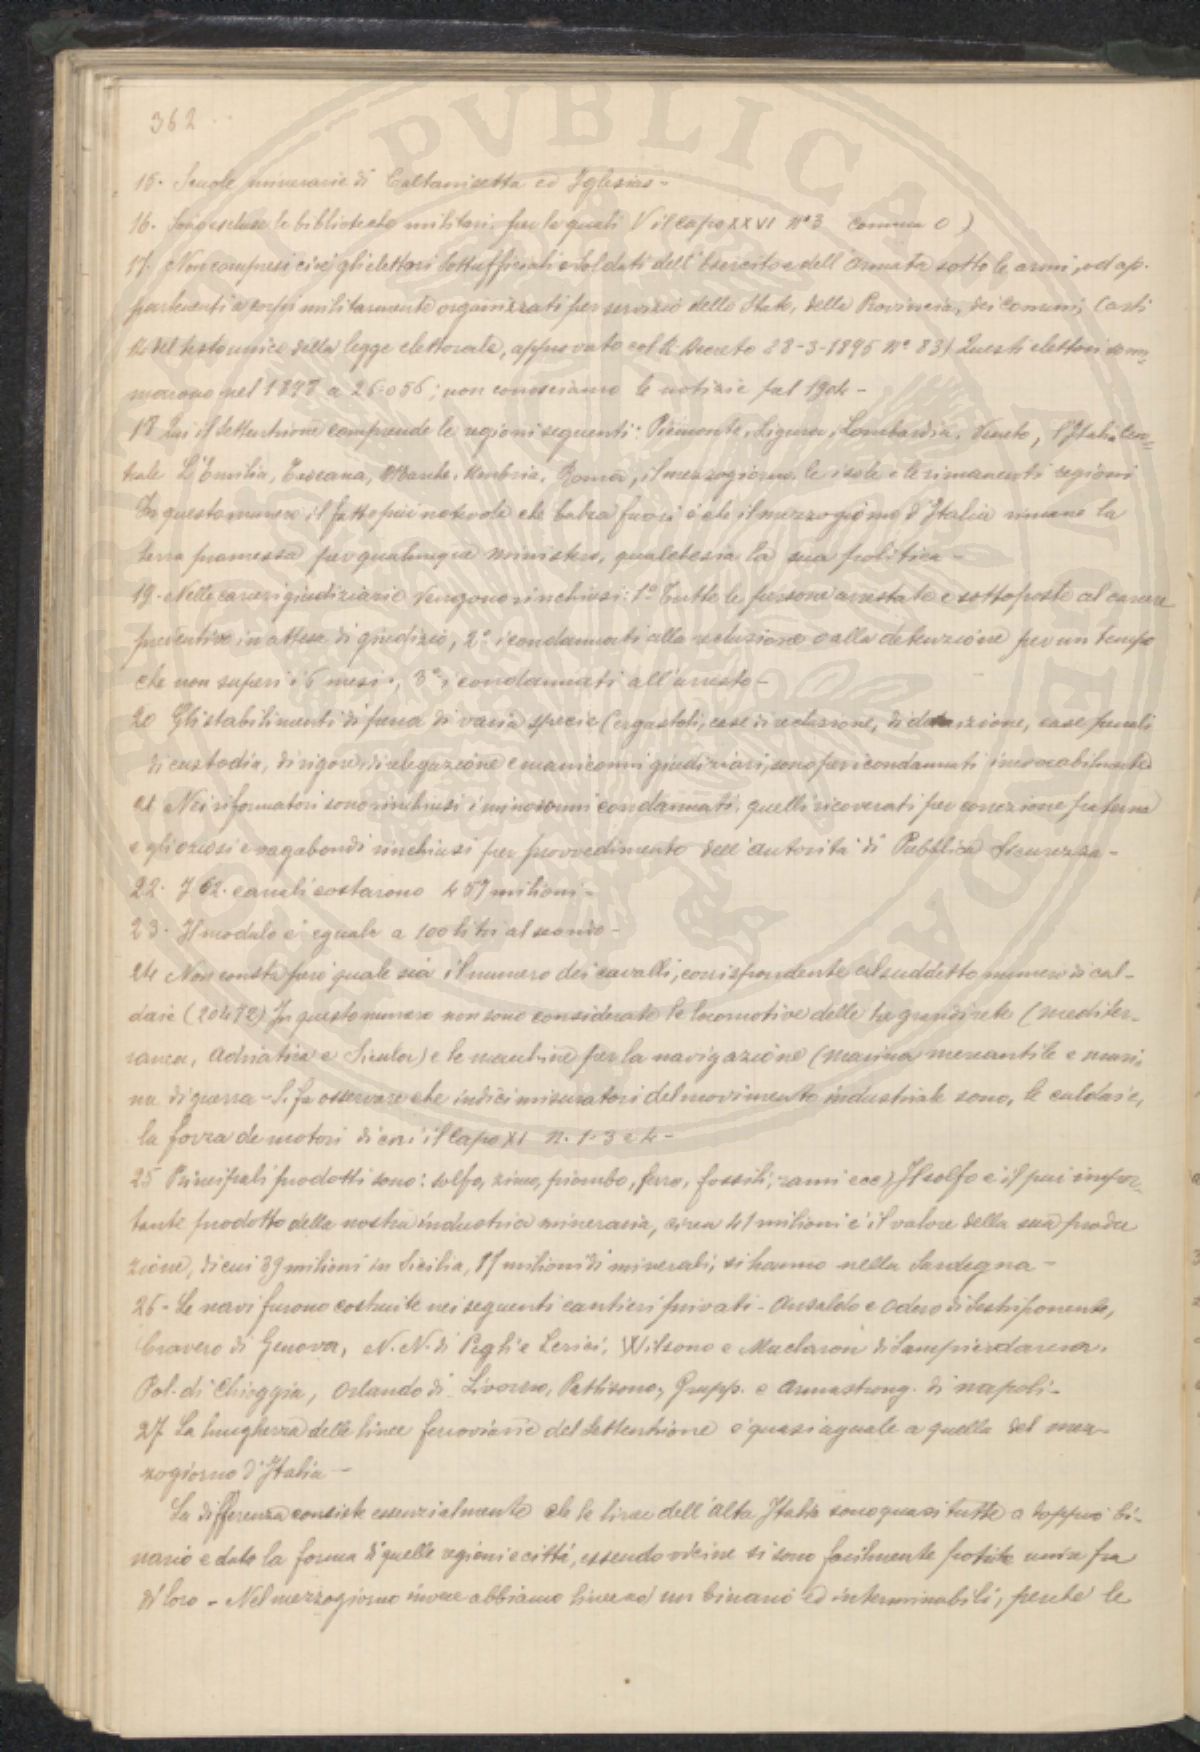 362
15. Scuole minerarie di Caltanisetta ed Iglesias -
16. Sono escluse le biblioteche militari, per le quali V il capo XXVI Nº 3 comma O)
17. Non compresi cioè gli elettori sottufficiali e soldati dell'Esercito e dell'Armata sotto le armi, od ap-
partenenti a corpi militarmente organizzati per servizio dello Stato, della Provincia, dei Comuni, (arti
del testo unico della legge elettorale, approvato col R. Decreto 28-3-1895 Nº 83) Questi elettori som-
marono nel 1897 a 26.056; non conosciamo le notizie pel 1904 -
18 Qui il Settentrione comprende le regioni seguenti: Piemonte, Liguria, Lombardia, Veneto, l'Italia Cen-
trale L'Emilia, Toscana, Marche, Umbria, Roma, il mezzogiorno, le isole e le rimanenti regioni
In questo numero il fatto più notevole che balza fuori è che il mezzogiorno d'Italia rimane la
terra promessa per qualunque ministero, qualebesia la sua politica -
19. Nelle carceri giudiziarie vengono rinchiusi: 1º Tutte le persone arrestate e sottoposte al carcere
preventivo in attesa di giudizio, 2º i condannati alla reclusione o alla detenzione per un tempo
che non superi i 6 mesi, 3º i condannati all'arresto -
20 Gli stabilimenti di pena di varia specie (ergastoli, case di reclusione, di detenzione, case penali
di custodia, di rigore, di relegazione e manicomi giudiziari, sono pei condannati irrevocabilmente
21 Nei riformatori sono rinchiusi i minorenni condannati, quelli ricoverati per correzione paterna
e gli oziosi e vagabondi rinchiusi per provvedimento dell'autorità di Pubblica Sicurezza -
22. I 62. canali costarono 457 milioni -
23. Il modulo è eguale a 100 litri al secondo -
24 Non consta però quale sia il numero dei cavalli, corrispondente al suddetto numero di cal-
daie (20472) In questo numero non sono considerate le locomotive delle tre grandi reti (mediter-
ranea, Adriatica e Sicula) e le macchine per la navigazione (marina mercantile e mari-
na di guerra - Si fa osservare che indici misuratori del movimento industriale sono, le caldaie,
la forza de motori di cui il capo XI n. 1-3 e 4 -
25 Principali prodotti sono: solfo, zinco, piombo, ferro, fossili, rami ecc) Il solfo è il più impor-
tante prodotto della nostra industria mineraria, circa 41 milioni è il valore della sua produ
zione, di cui 39 milioni in Sicilia, 17 milioni di minerali, si hanno nella Sardegna -
26 - Le navi furono costruite nei seguenti cantieri privati - Ansaldo e Odero di Sestri ponente,
Cravero di Genova, N. N. di Pegli e Lerici, Wilsone e Maclaren di Sampierdarena,
Pol. di Chioggia, Orlando di Livorno, Pattisone, Guapp. e Armastrong. di napoli -
27 La lunghezza delle linee ferroviarie del Settentrione è quasi uguale a quella del mez-
zogiorno d'Italia -
La differenza consiste essenzialmente che le linee dell'alta Italia sono quasi tutte a doppio bi-
nario e data la forma di quelle regioni e città, essendo vicine si sono facilmente potute unire fra
di loro - Nel mezzogiorno invece abbiamo linee ad un binario ed interminabili, perchè le